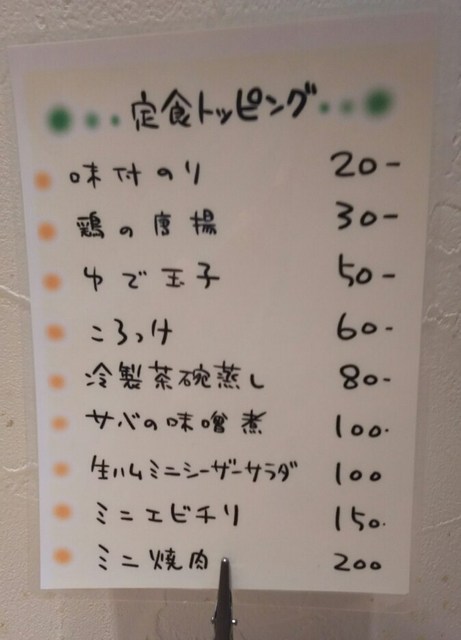 定食トッピング
味付のり 20-
鶏の唐揚 30-
ゆで玉子 50-
ころっけ 60-
冷製茶碗蒸し 80-
サバの味噌煮 100.
生ハムミニシーザーサラダ 100
ミニエビチリ 150.
ミニ焼肉 200